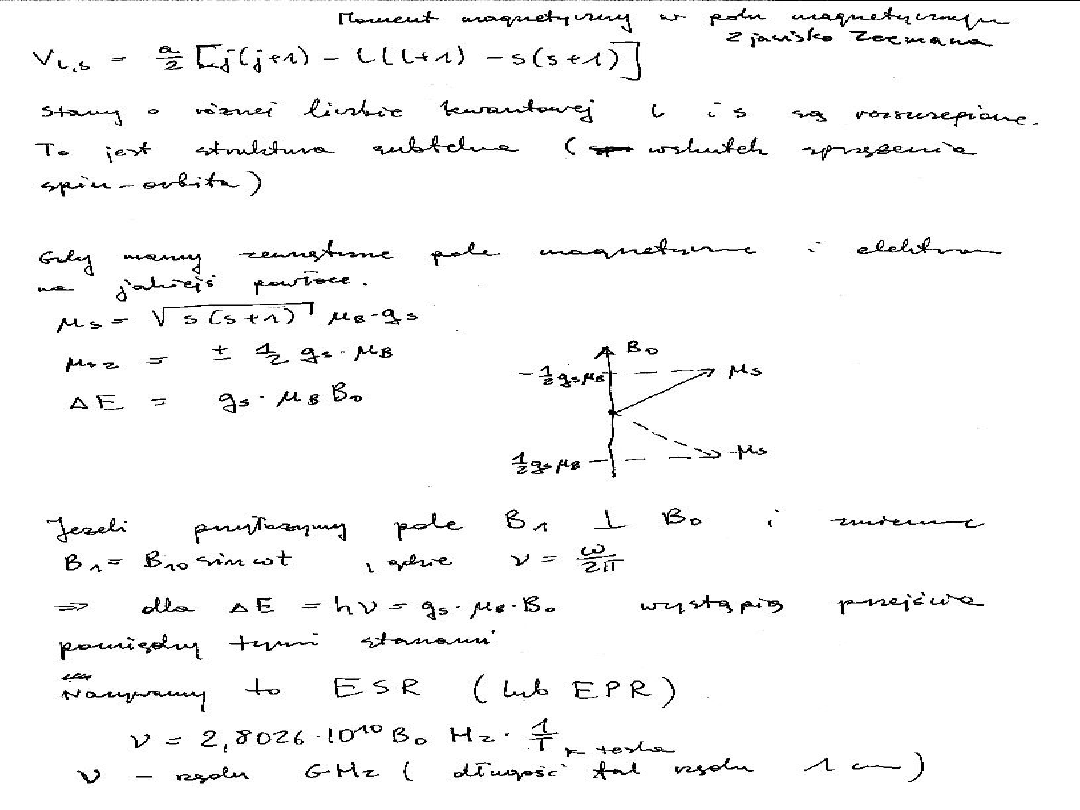 Moment magnetyczny w polu magnetycznym
Zjawisko Zeemana
V_{l,s} = a/2 [j(j+1) - l(l+1) - s(s+1)]
Stany o różnej liczbie kwantowej l i s są rozszczepione.
To jest struktura subtelna ( wskutek sprzężenia
spin-orbita)
Gdy mamy zewnętrzne pole magnetyczne i elektron
na jakiejś powłoce.
μ_s = √s(s+1) μ_B·g_s
μ_{sz} = ± 1/2 g_s·μ_B
ΔE = g_s·μ_B B_0
B_0
-1/2 g_s μ_B
μ_s
1/2 g_s μ_B
μ_s
Jeżeli przyłożymy pole B_1 ⊥ B_0 i zmienne
B_1 = B_{10} sin ωt , gdzie ν = ω/2π
⇒ dla ΔE = hν = g_s·μ_B·B_0 wystąpią przejścia
pomiędzy tymi stanami
Nazywamy to ESR (lub EPR)
ν = 2,8026·10^{10} B_0 Hz · 1/T ← tesla
ν – rzędu GHz ( długość fal rzędu 1 cm)